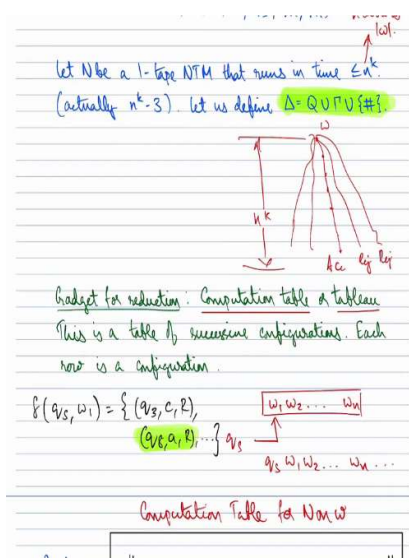 |w|.
Let N be a 1-tape NTM that runs in time ≤ n^k.
(actually n^k-3). Let us define Δ = Q ∪ Γ ∪ {#}.
w
n^k
Acc Rej Rej
Gadget for reduction: Computation table or tableau
This is a table of successive configurations. Each
row is a configuration.
δ(q_5, w_1) = {(q_3, c, R),
w_1 w_2 ... w_n
(q_8, a, R), ...}
q_5 w_1 w_2 ... w_n ...
Computation Table for N on w